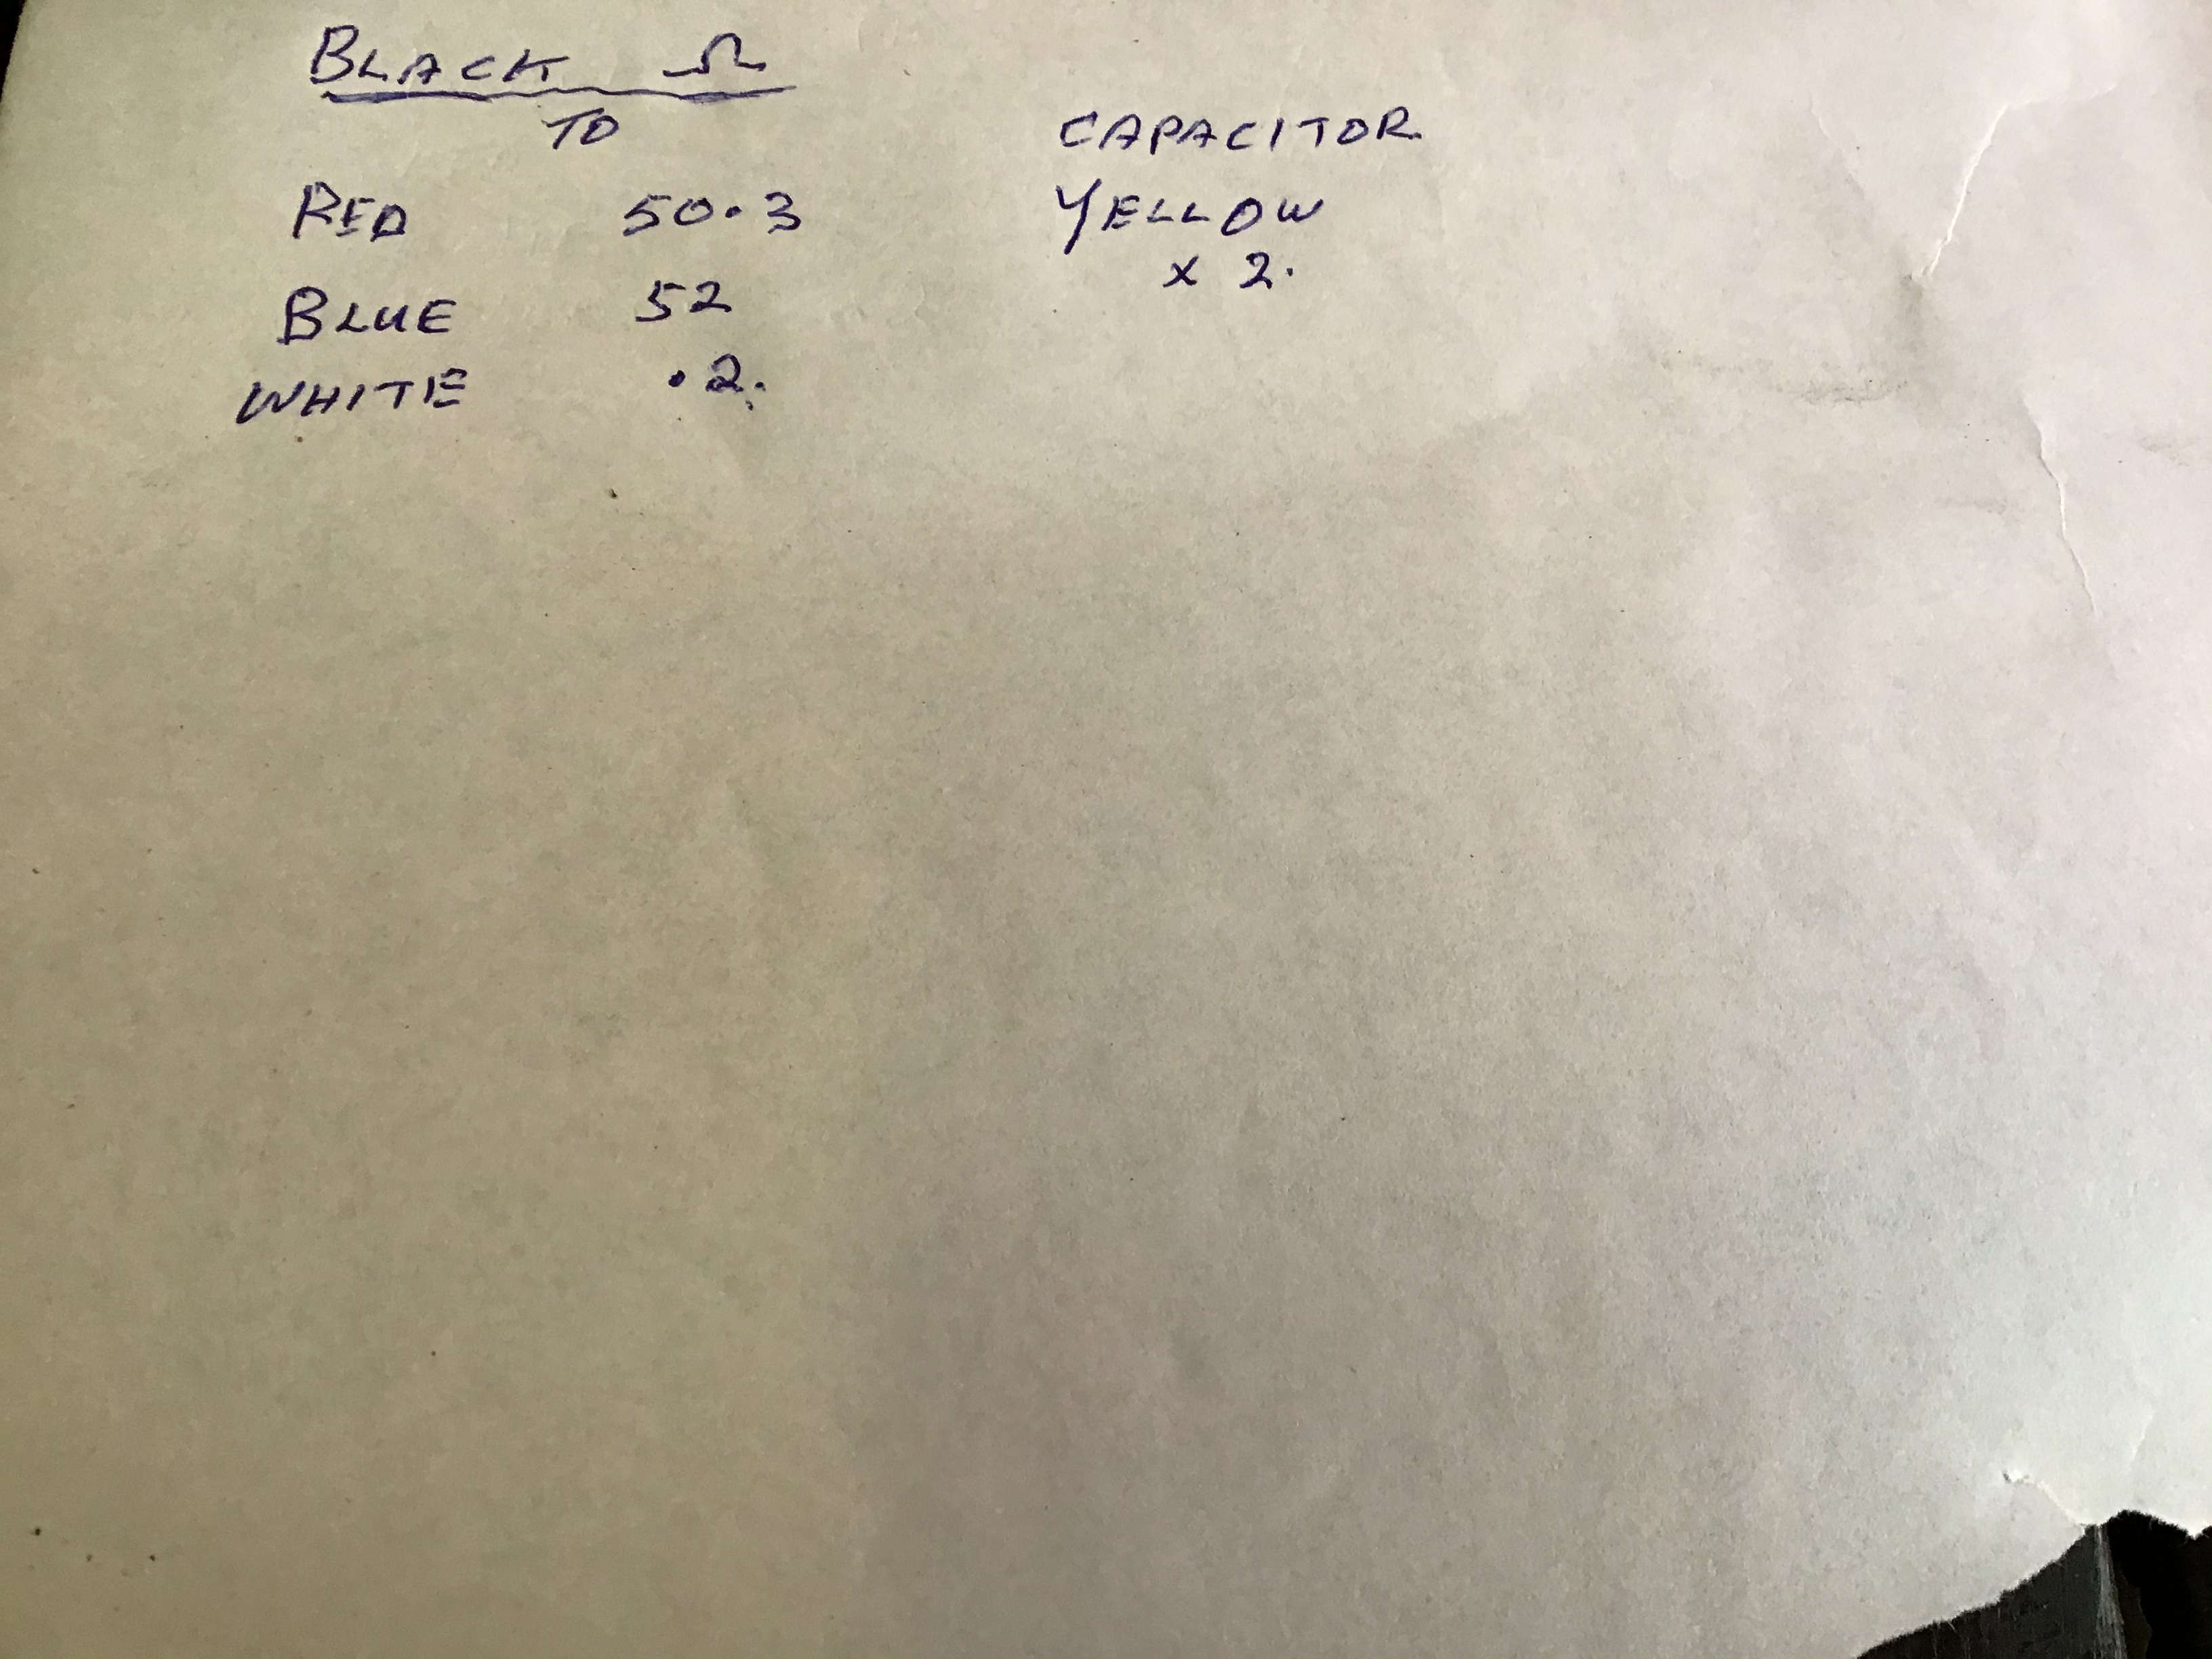 BLACK Ω
TO
RED 50.3
BLUE 52
WHITE .2.
CAPACITOR
YELLOW
x 2.